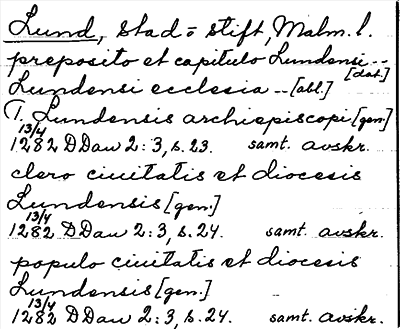 Lund, stad o stift, Malm. l.
preposito et capitulo Lundensi -- [dat.]
Lundensi ecclesia -- [abl.]
T. Lundensis archiepiscopi [gen]
13/4 1282 DDan 2:3, s. 23. samt. avskr.
clero ciuitatis et diocesis
Lundensis [gen.]
13/4 1282 DDan 2:3, s. 24. samt. avskr.
populo ciuitatis et diocesis
Lundensis [gen.]
13/4 1282 DDan 2:3, s. 24. samt. avskr.